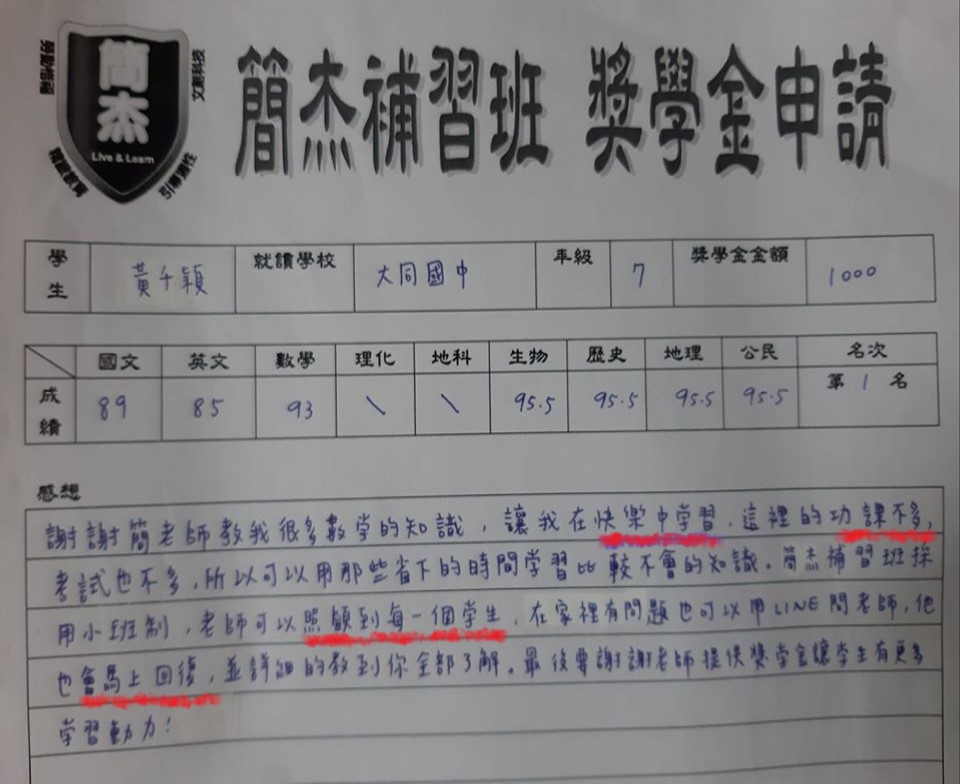 簡杰
Live & Learn
簡杰補習班 獎學金申請
學生 黃千穎 就讀學校 大同國中 年級 7 獎學金金額 1000
國文 英文 數學 理化 地科 生物 歷史 地理 公民 名次
成績 89 85 93 \ \ 95.5 95.5 95.5 95.5 第 1 名
感想
謝謝簡老師教我很多數学的知識，讓我在快樂中学習，這裡的功課不多，
考試也不多，所以可以用那些省下的時間学習比較不會的知識。簡杰補習班採
用小班制，老師可以照顧到每一個学生，在家裡有問題也可以用LINE問老師，他
也會馬上回復，並詳細的教到你全部了解。最後要謝謝老師提供獎学金讓学生有更多
学習動力！